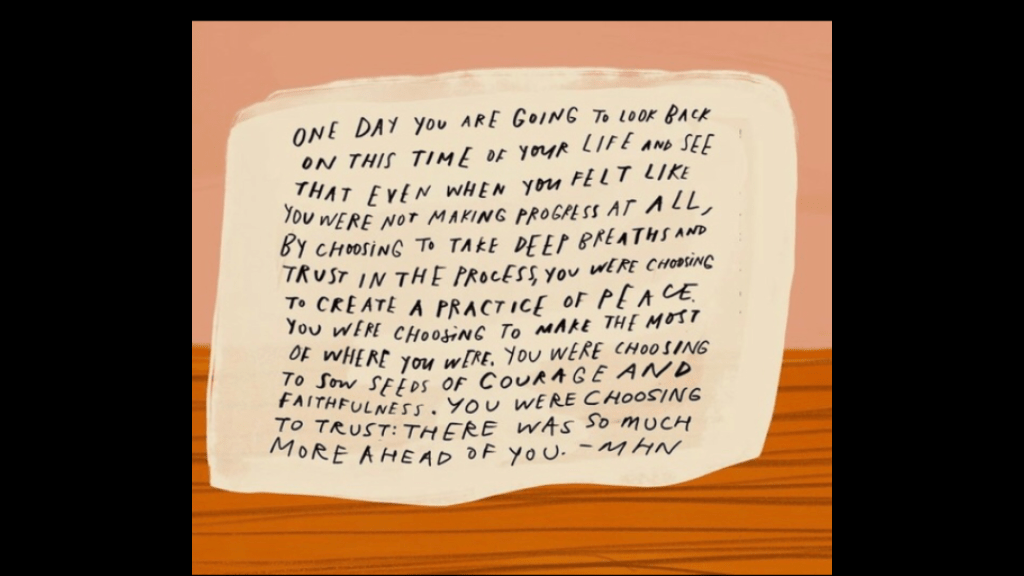 ONE DAY YOU ARE GOING TO LOOK BACK
ON THIS TIME OF YOUR LIFE AND SEE
THAT EVEN WHEN YOU FELT LIKE
YOU WERE NOT MAKING PROGRESS AT ALL,
BY CHOOSING TO TAKE DEEP BREATHS AND
TRUST IN THE PROCESS, YOU WERE CHOOSING
TO CREATE A PRACTICE OF PEACE.
YOU WERE CHOOSING TO MAKE THE MOST
OF WHERE YOU WERE. YOU WERE CHOOSING
TO SOW SEEDS OF COURAGE AND
FAITHFULNESS. YOU WERE CHOOSING
TO TRUST: THERE WAS SO MUCH
MORE AHEAD OF YOU. -MHN